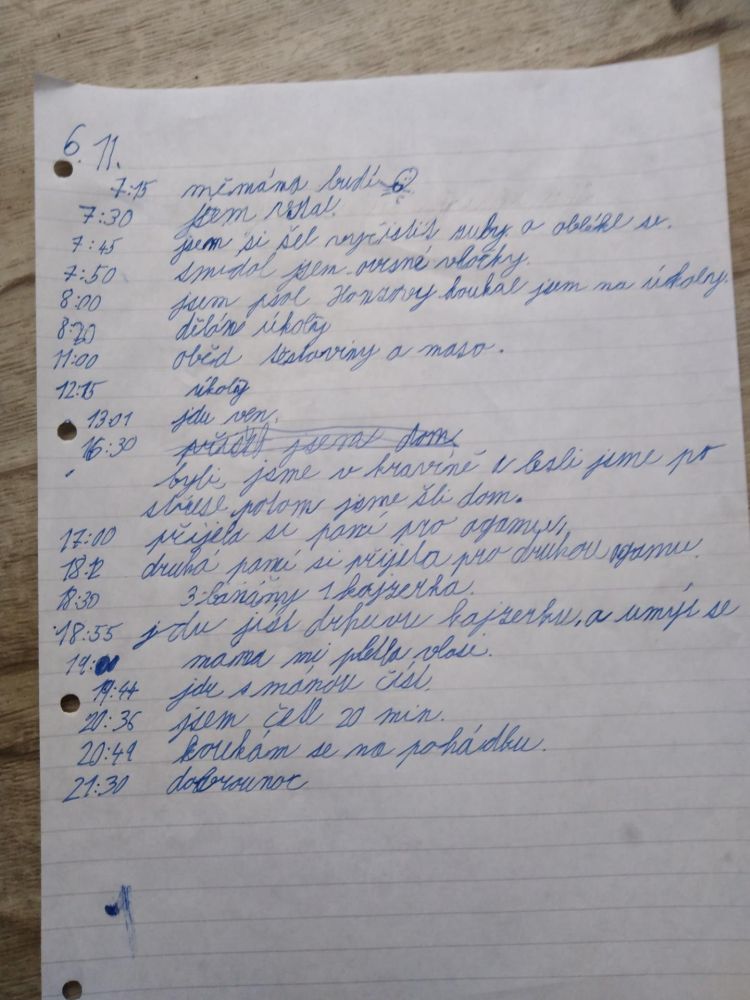 6. 11.
7:15 mě máma budí
7:30 jsem vstal.
7:45 jsem si šel vyčistit zuby. a oblékl se.
7:50 snídal jsem ovesné vločky.
8:00 jsem psal Honzovy. koukal jsem na úkoly.
8:20 dělám úkoly
11:00 oběd těstoviny a maso.
12:15 úkoly
13:01 jdu ven.
16:30 přišel jsem dom
byli jsme v kravíně a lesli jsme po
střese potom jsme šli dom.
17:00 přijela si paní pro agamu,
18:12 druhá paní si přijela pro druhou agamu.
18:30 3 banány 1 kajzerka.
18:55 jdu jíst druhou kajzerku, a umýt se
19: mama mi pletla vlasi.
19:44 jdu s mámou číst.
20:36 jsem četl 20 min.
20:49 koukám se na pohádku.
21:30 dobrounoc